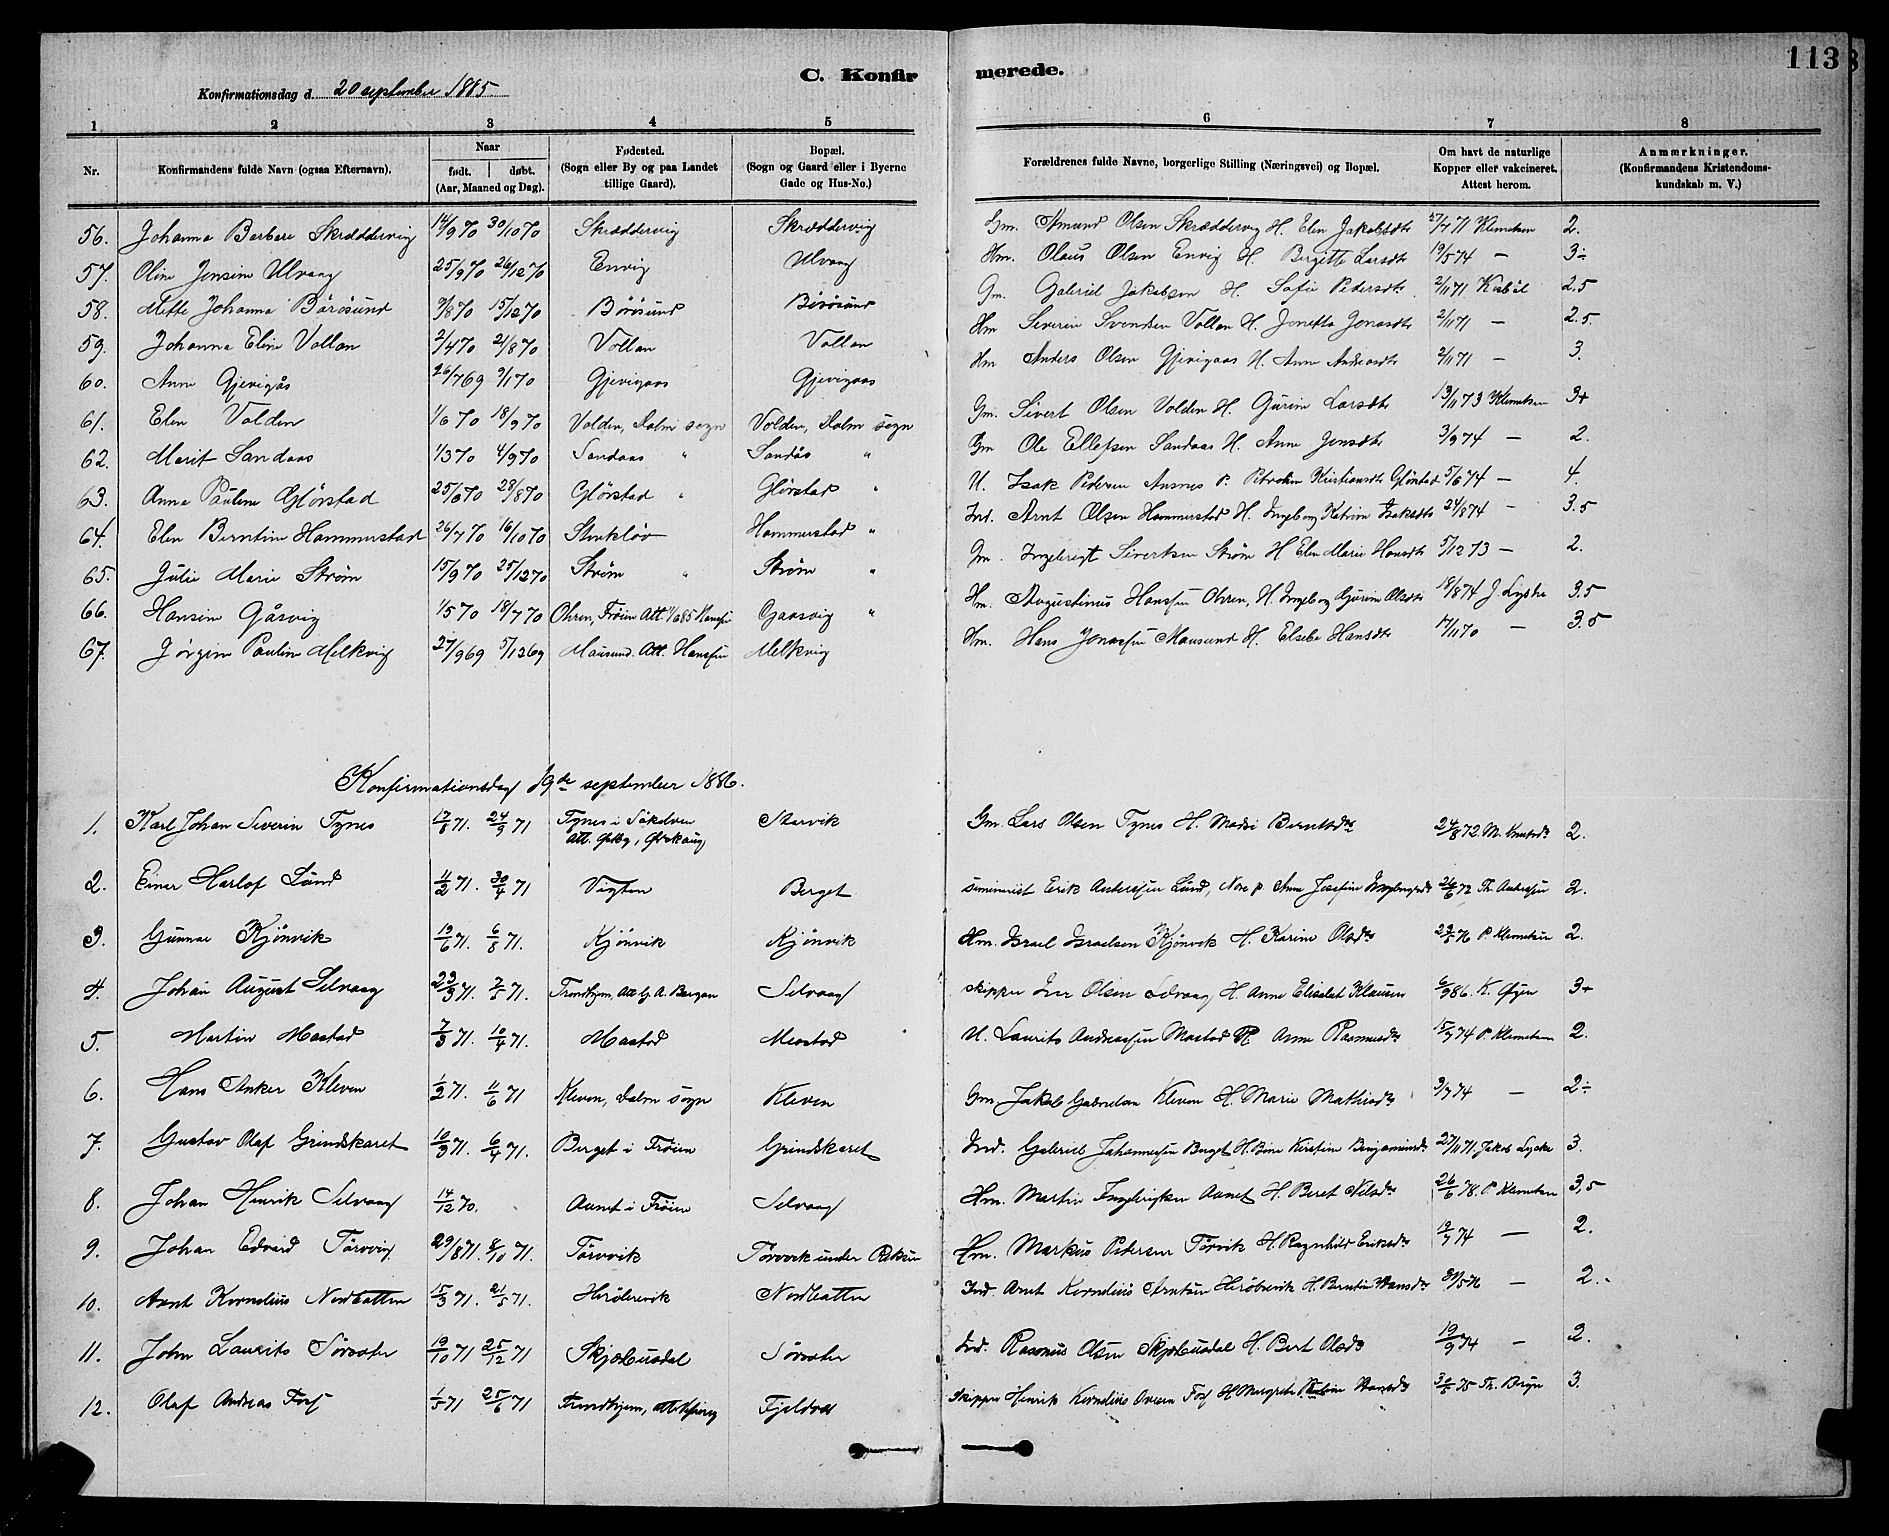 113
C. Konfirmerede.
Konfirmationsdag d. 20 september 1885
1 2 3 4 5 6 7 8
Nr. Konfirmandens fulde Navn (ogsaa Efternavn). Naar født. døbt. (Aar, Maaned og Dag). Fødested. (Sogn eller By og paa Landet tillige Gaard). Bopæl. (Sogn og Gaard eller i Byerne Gade og Hus-No.) Forældrenes fulde Navne, borgerlige Stilling (Næringsvei) og Bopæl. Om havt de naturlige Kopper eller vakcineret. Attest herom. Anmærkninger. (Konfirmandens Kristendomskundskab m. V.)
56. Johanna Berbare Skræddervig 14/9 70 30/10 70 Skræddervig Skræddervig Gm. Amund Olsen Skræddervig H. Elen Jakobsdtr 27/7 71 Klemetsen 2.
57. Oline Jensine Ulvaag 25/9 70 26/12 70 Envig Ulvaag Hm. Olaus Olsen Envig H. Bergitte Larsdtr 19/5 74 — 3÷
58. Mette Johanna Börösund 9/8 70 15/12 70 Börösund Börösund Gm. Gabriel Jakobsen H. Sofie Pedersdtr 2/11 71 2.5
59. Johanna Eline Vollan 2/4 70 21/8 70 Vollan Vollan Hm Severin Svendsen Vollan H. Jonetta Jonasdtr 2/11 71 — 2.5.
60. Anne Gjevigås 26/7 69 9/1 70 Gjevigaas Gjevigaas Hm Anders Olsen Gjevigaas H. Anne Andreasdtr 2/11 71 — 3.
61. Elen Volden 1/6 70 18/9 70 Volden, Dolm sogn Volden, Dolm sogn Gm. Sivert Olsen Volden H. Gurine Larsdtr 13/11 73 Klemetsen 3+
62. Marit Sandaas 1/3 70 4/9 70 Sandaas " Sandås " Gm Ole Ellefsen Sandaas H. Anne Jonsdtr 3/9 74 — 2.
63. Anna Pauline Glörstad 25/6 70 28/8 70 Glörstad " Glörstad " U. Isak Pedersen Ansnes P. Kristiansdtr Glörstad 5/6 74 — 4.
64. Elen Berntine Hammerstad 26/7 70 16/10 70 Stenklöv Hammerstad " Ind. Arnt Olsen Hammerstad H. Ingeborg Katrine Isaksdtr 24/8 74 — 3.5
65. Julie Marie Strøm 15/9 70 25/12 70 Strøm " Strøm " Gm. Ingebrigt Sivertsen Strøm H Elen Marie Hansdtr 5/12 73 — 2.
66. Hansine Gåsvig 1/5 70 18/7 70 Ohren, Frøien Att. 1/6 85 Hansen Gaasvig " Hm. Augustinus Hansen Ohren, H. Ingeborg Gjurine Olsdtr 18/8 74 J. Lyshe 3.5
67. Jørgine Pauline Melkvig 27/9 69 5/12 69 Mausund. Att. Hansen Melkvig Hm. Hans Jonassen Mausund H. Elsebe Hansdtr 17/11 70 — 3.5
Konfirmationsdag 19de september 1886.
1. Karl Johan Severin Tynes 17/8 71. 24/9 71 Tynes i Sökelven Starvik Gm. Lars Olsen Tynes H. Madsi Berntsdtr 24/8 72. M. Knutsdtr 2.
2. Einer Harlof Lund 11/2 71. 30/4 71 Vigten Berget seminarist Erik Anderssen Lund, Anne Josefine 26/6 72 Th. Anderssen 2.
3. Gunnar Kjönvik 19/6 71. 6/8 71. Kjönvik Kjönvik Hm. Israel Israelsen Kjönvik H. Karine Olsdtr 29/5 76 P. Klemetsen 2.
4. Johan August Selvaag 23/3 71. 7/5 71. Trondhjem, Att. G. A. Bergan Selvaag skipper Iver Olsen Selvaag, H. Anne Elisabet Klausen 6/9 86. K. Øyen 3+
5. Martin Mastad 7/3 71. 10/4 71. Mastad Mastad U. Laurits Andreassen Mastad P. Anne Rasmusdtr 15/7 74 P. Klemetsen 2.
6. Hans Anker Kleven 1/2 71. 11/6 71 Kleven, Dolm sogn Kleven Gm. Jakob Gabrielsen Kleven H. Marie Mathiasdtr 3/7 74 — 2÷
7. Gustav Olaf Grindskaret 10/3 71. 6/4 71. Berget i Frøien Grindskaret Ind. Gabriel Johannessen Berget H. Kirstine Benjaminsdtr 27/11 71. Jakob Lyshe 3.
8. Johan Henrik Selvaag 14/12 70. Aunet i Frøien Selvaag Hm. Martin Ingebrigtsen Aunet H. Beret Nilsdtr 26/6 78. P. Klemetsen 3,5
9. Johan Edvard Törvvig 29/8 71. 8/10 71. Törvvik Törvvik under Hm. Markus Pedersen Törvik H. Ragnhild Eriksdtr 19/7 74 — 2.
10. Arnt Kornelius Nordhatten 15/3 71. 21/5 71. Herölsvik Nordhatten Ind. Arnt Kornelius Arntsen H. Berntine Hansdtr 24/5 76 — 2.
11. John Laurits Sörsæter 19/10 71 25/12 71 Skjærbusdal Sörsæter Ind. Rasmus Olsen Skjærbusdal H. Beret Olsdtr 19/9 74 — 2.
12. Olaf Andreas Foss 1/5 71 25/6 71 Trondhjem, Fjeldvær Skipper Henrik Kornelius Foss H. Margrete Hansdtr 30/5 75 Th. Bryn 3.